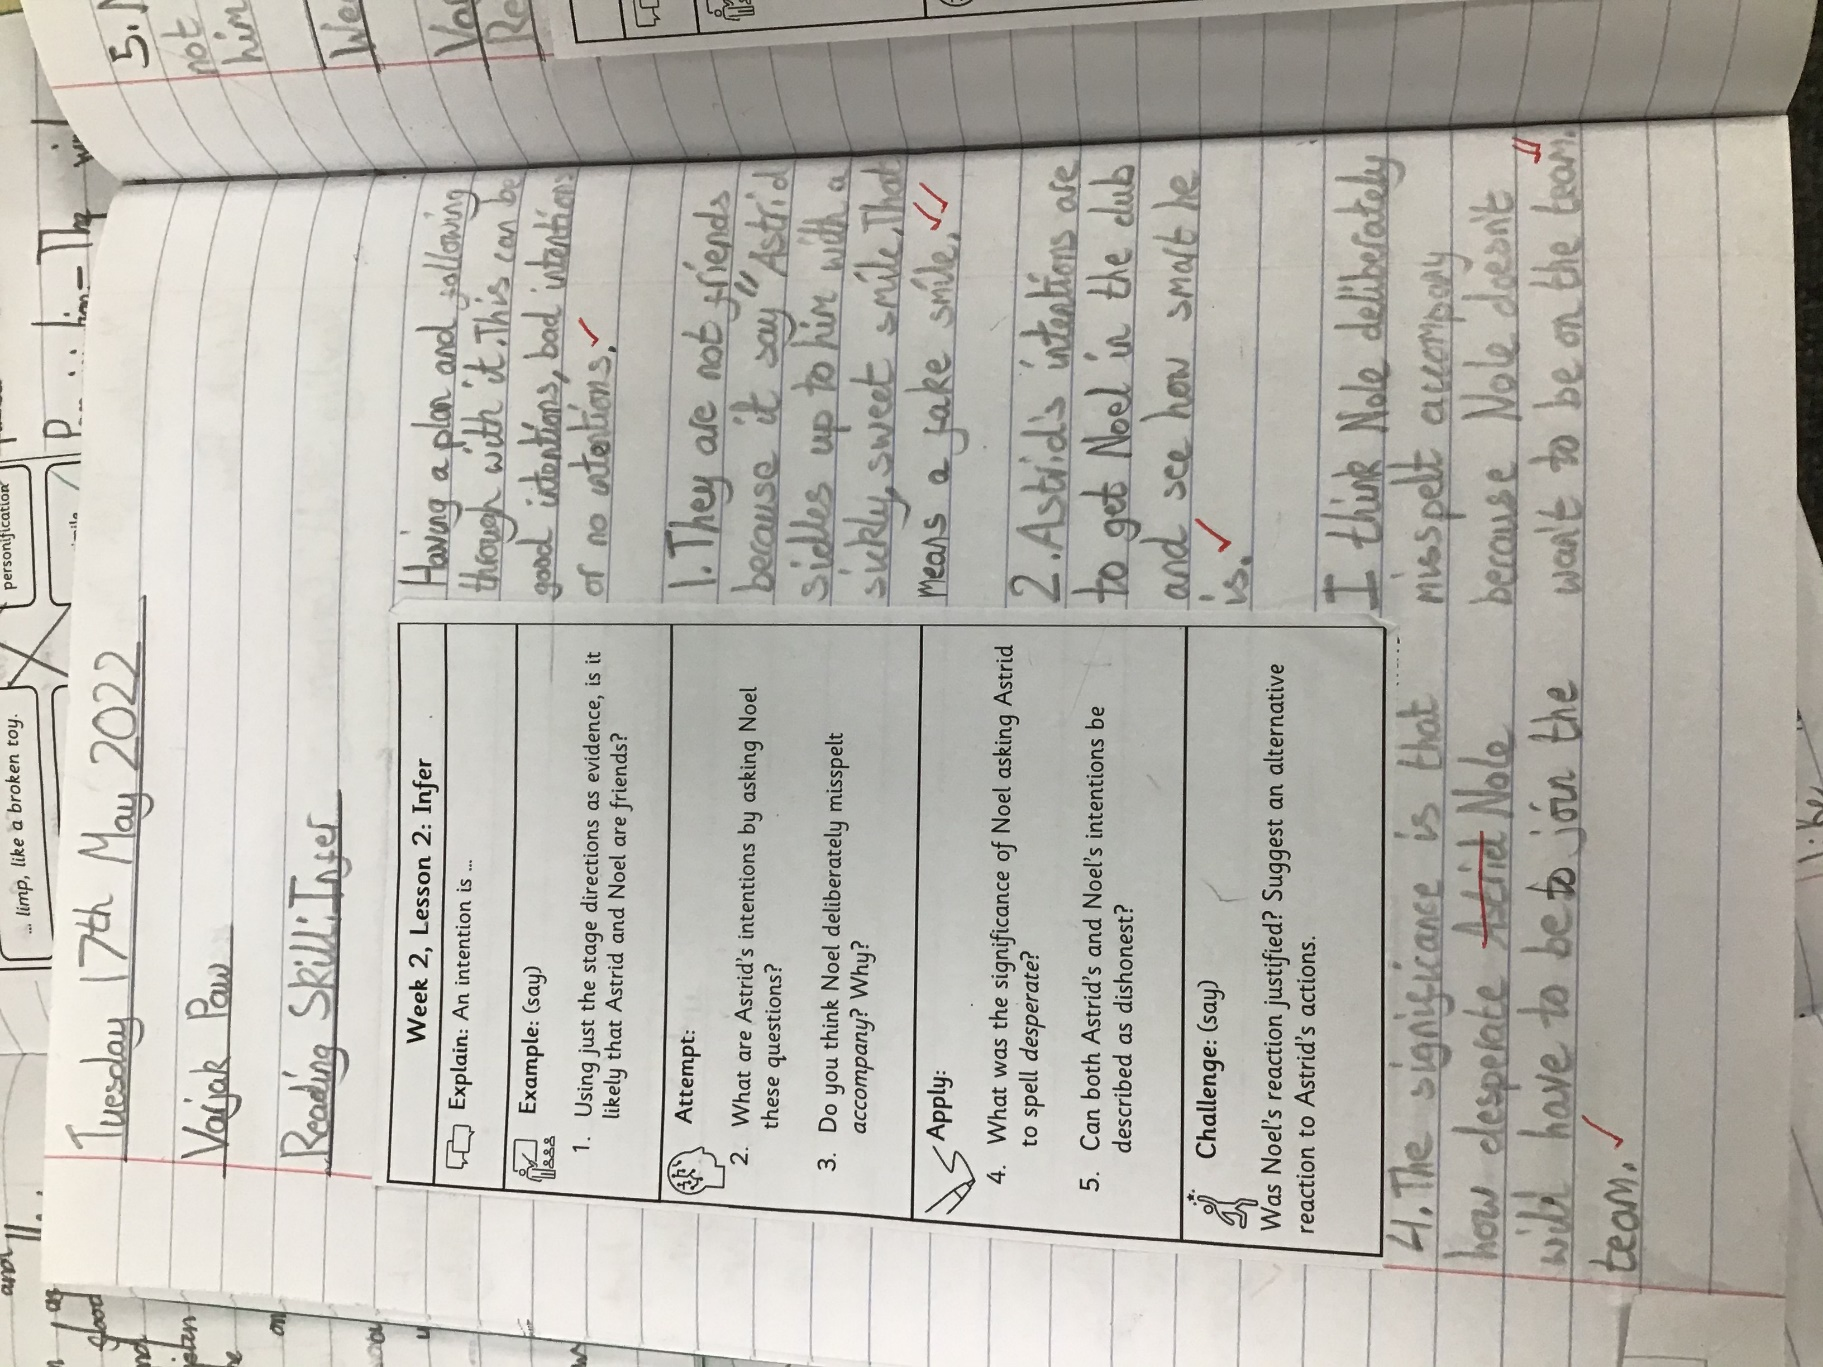 Tuesday 17th May 2022
Varjak Paw
Reading Skill: Infer
Week 2, Lesson 2: Infer
Explain: An intention is ...
Example: (say)
1. Using just the stage directions as evidence, is it
likely that Astrid and Noel are friends?
Attempt:
2. What are Astrid's intentions by asking Noel
these questions?
3. Do you think Noel deliberately misspelt
accompany? Why?
Apply:
4. What was the significance of Noel asking Astrid
to spell desperate?
5. Can both Astrid's and Noel's intentions be
described as dishonest?
Challenge: (say)
Was Noel's reaction justified? Suggest an alternative
reaction to Astrid's actions.
Having a plan and following
through with it. This can be
good intentions, bad intentions
or no intentions.
1. They are not friends
because it say "Astrid
sidles up to him with a
sickly, sweet smile. That
means a fake smile.
2. Astrid's intentions are
to get Noel in the club
and see how smart he
is.
I think Nole deliberately
misspelt accompany
because Nole doesn't
want to be on the team.
4. The significance is that
how desperate Astrid Nole
will have to be to join the
team.
5.
not
him
... limp, like a broken toy.
personification